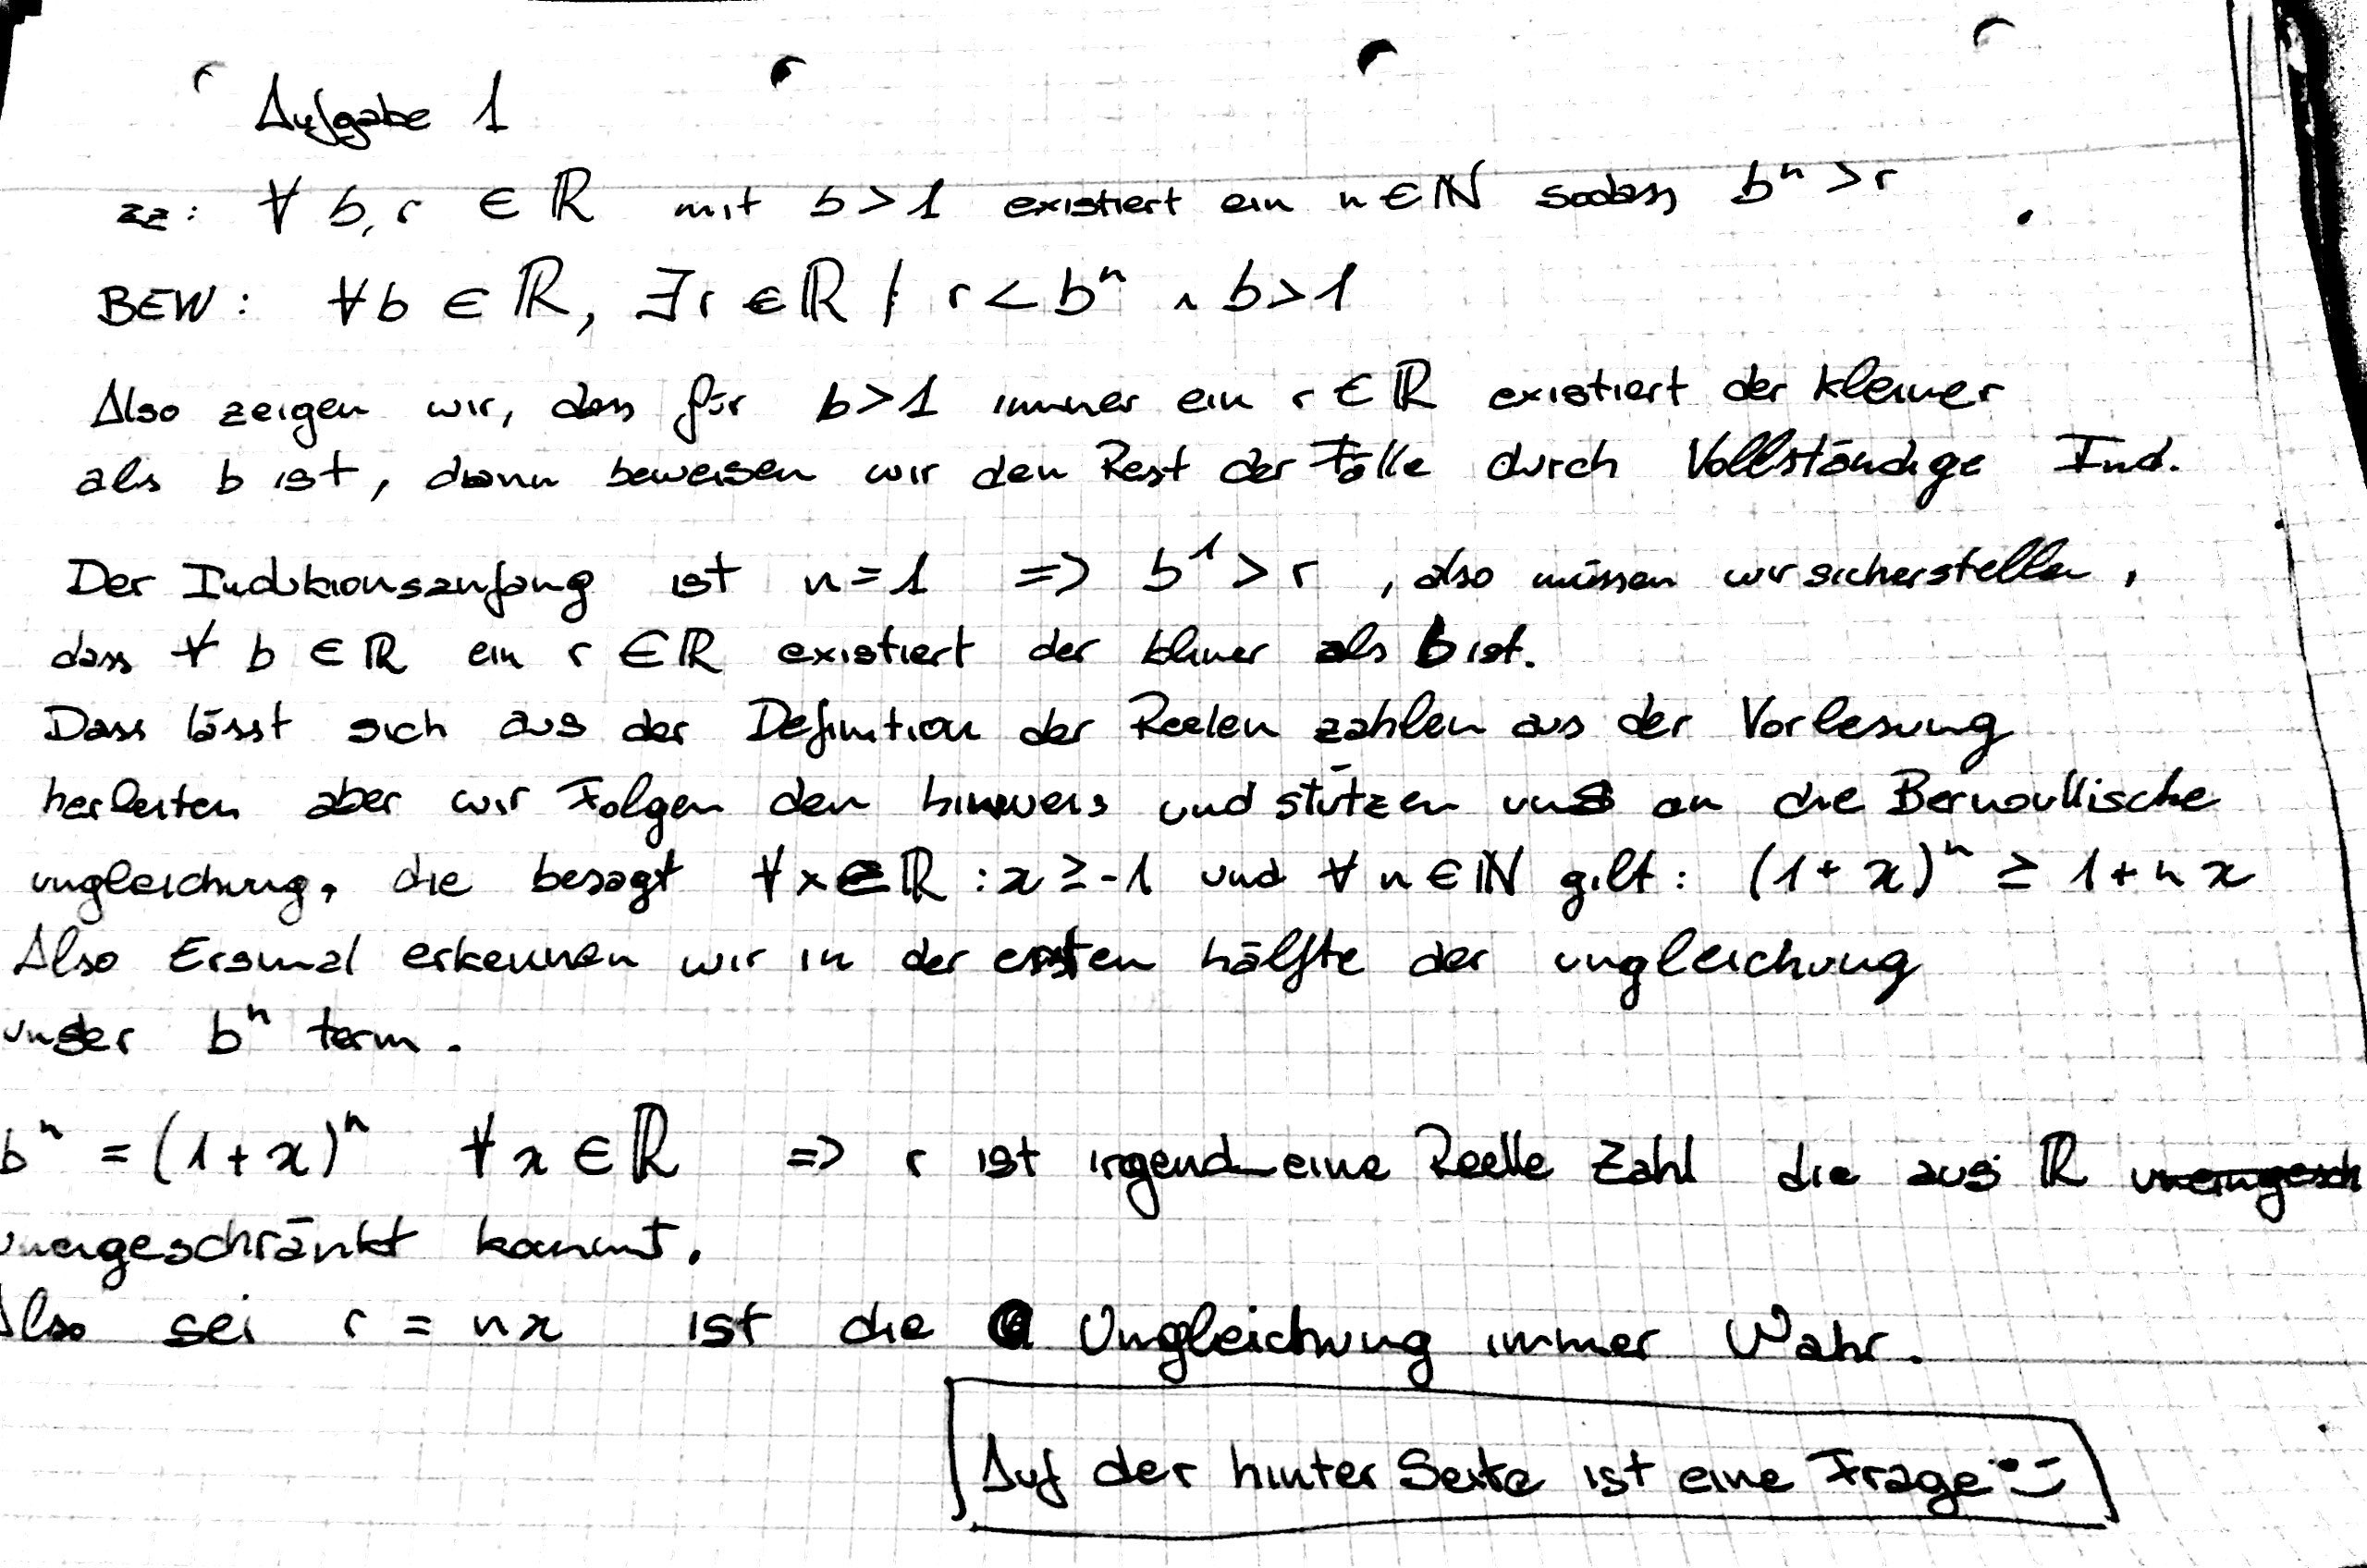 Aufgabe 1
zz: ∀ b, r ∈ ℝ mit b > 1 existiert ein n ∈ ℕ sodass bⁿ > r .
BEW: ∀b ∈ ℝ, ∃r ∈ ℝ / r < bⁿ ∧ b > 1
Also zeigen wir, dass für b > 1 immer ein r ∈ ℝ existiert der kleiner
als b ist, dann beweisen wir den Rest der Fälle durch Vollständige Ind.
Der Induktionsanfang ist n = 1 => b¹ > r , also müssen wir sicherstellen ,
dass ∀ b ∈ ℝ ein r ∈ ℝ existiert der kleiner als b ist.
Dass lässt sich aus der Definition der Reelen zahlen aus der Vorlesung
herleiten aber wir Folgen den hinweis und stützen uns an die Bernoullische
ungleichung, die besagt ∀x∈ℝ : x ≥ -1 und ∀ n ∈ ℕ gilt: (1 + x)ⁿ ≥ 1 + n x
Also Ersmal erkennen wir in der ersten hälfte der ungleichung
unser bⁿ term .
bⁿ = (1 + x)ⁿ ∀ x ∈ ℝ => r ist irgend eine Reelle Zahl die aus ℝ
uneingeschränkt kommt.
Also sei r = nx ist die Ungleichung immer Wahr.
Auf der hinter Seite ist eine Frage :)